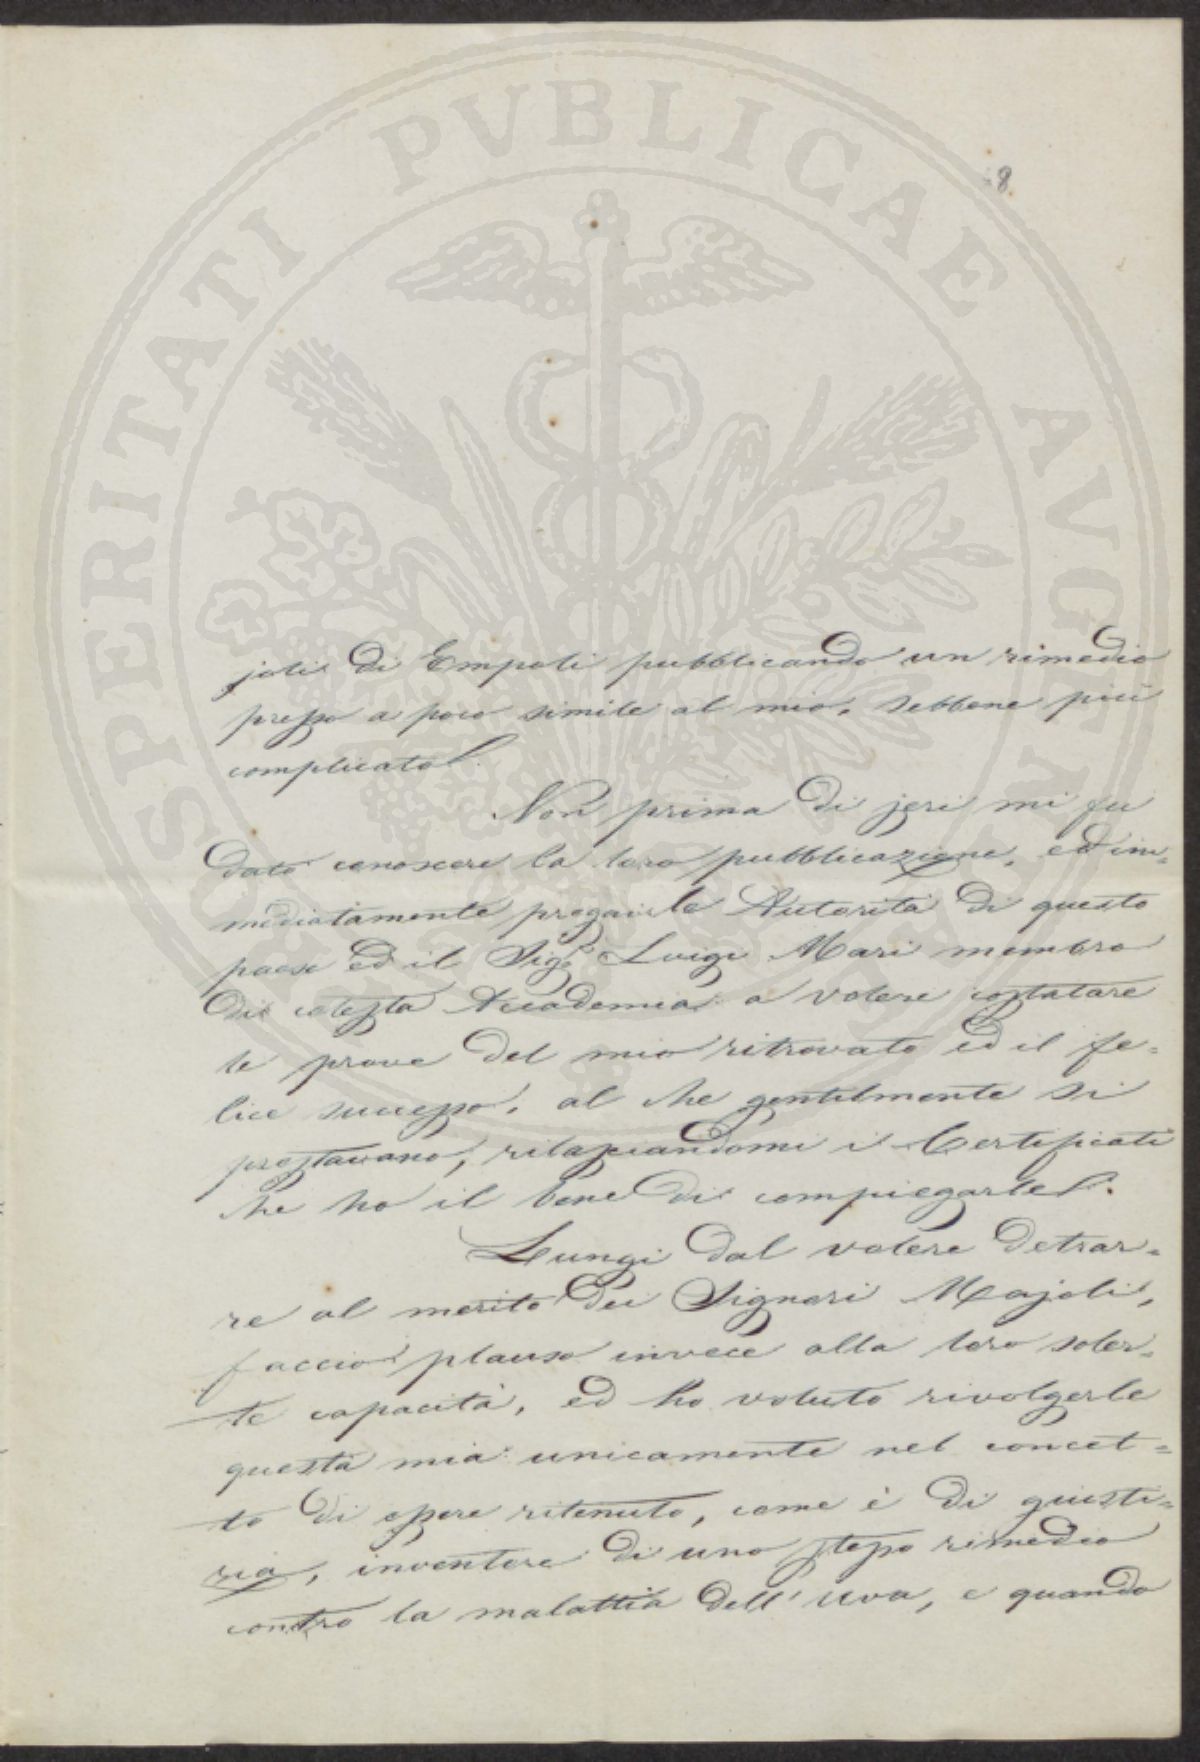 PROSPERITATI PVBLICAE AVGENDAE
8
joli di Empoli pubblicando un rimedio
presso a poco simile al mio, sebbene più
complicato.
Non prima di jeri mi fu
dato conoscere la loro pubblicazione, ed im=
mediatamente pregai le Autorità di questo
paese ed il Sigr Luigi Mari membro
di cotesta Accademia a volere costatare
le prove del mio ritrovato ed il fe=
lice successo, al che gentilmente si
prestavano, rilasciandomi i Certificati
che ho il bene di compiegarle.
Lungi dal volere detrar=
re al merito dei Signori Majoli,
faccio plauso invece alla loro soler=
te capacità, ed ho voluto rivolgerle
questa mia unicamente nel concet=
to di essere ritenuto, come è di giusti=
zia, inventore di uno stesso rimedio
contro la malattia dell'uva, e quando